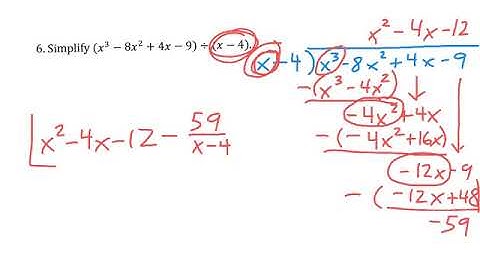 6. Simplify (x³ − 8x² + 4x − 9) ÷ (x − 4).
x² − 4x − 12
x − 4) x³ − 8x² + 4x − 9
−(x³ − 4x²)
−4x² + 4x
−(−4x² + 16x)
−12x − 9
−(−12x + 48)
−59
x² − 4x − 12 − 59/(x − 4)